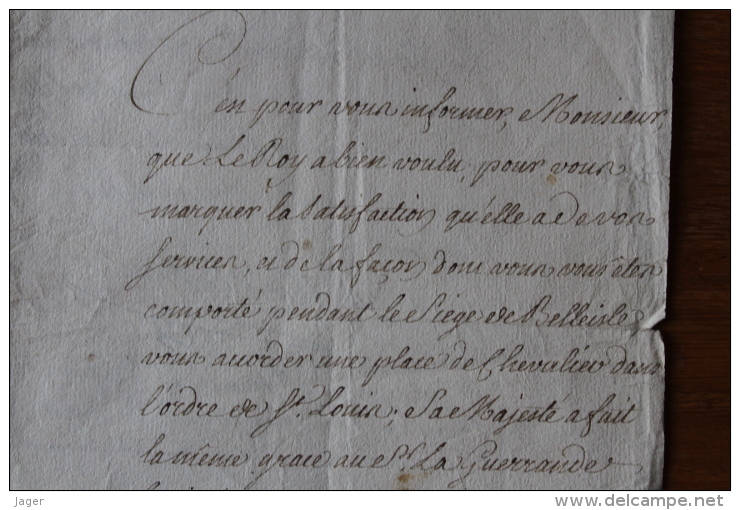 C'en pour vous informer, Monsieur,
que Le Roy a bien voulu, pour vous
marquer la Satisfaction qu'elle a de vos
Services, et de la façon dont vous vous êtes
comporté pendant le Siege de Belleisle,
vous accorder une place de Chevalier dans
l'ordre de St. Louis; Sa Majesté a fait
la même grace au Sr. La Guerrande
jager
www.delcampe.net